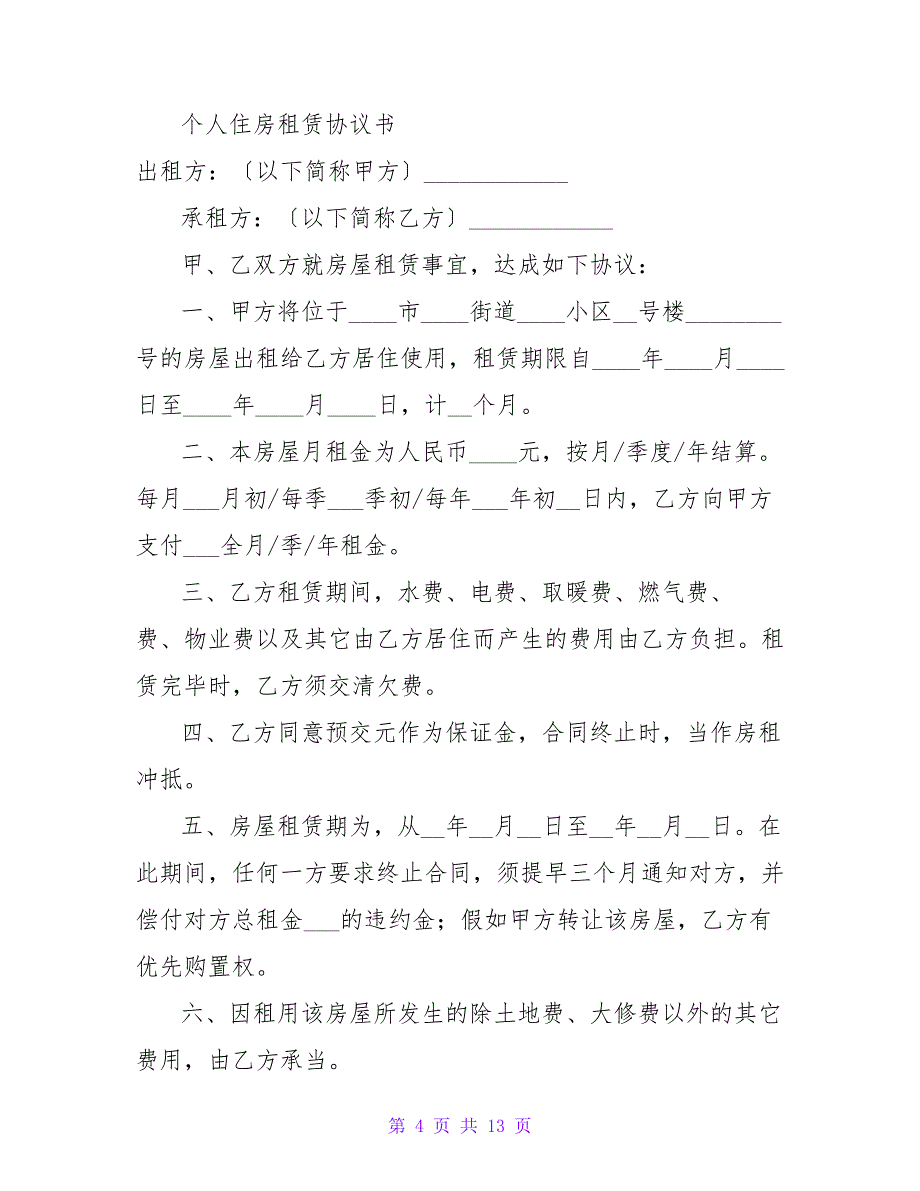 个人住房租赁协议书
出租方：〔以下简称甲方〕____________
承租方：〔以下简称乙方〕____________
甲、乙双方就房屋租赁事宜，达成如下协议：
一、甲方将位于____市____街道____小区__号楼________
号的房屋出租给乙方居住使用，租赁期限自____年____月____
日至____年____月____日，计__个月。
二、本房屋月租金为人民币____元，按月/季度/年结算。
每月___月初/每季___季初/每年___年初__日内，乙方向甲方
支付___全月/季/年租金。
三、乙方租赁期间，水费、电费、取暖费、燃气费、
费、物业费以及其它由乙方居住而产生的费用由乙方负担。租
赁完毕时，乙方须交清欠费。
四、乙方同意预交元作为保证金，合同终止时，当作房租
冲抵。
五、房屋租赁期为，从__年__月__日至__年__月__日。在
此期间，任何一方要求终止合同，须提早三个月通知对方，并
偿付对方总租金___的违约金；假如甲方转让该房屋，乙方有
优先购置权。
六、因租用该房屋所发生的除土地费、大修费以外的其它
费用，由乙方承当。
第 4 页 共 13 页